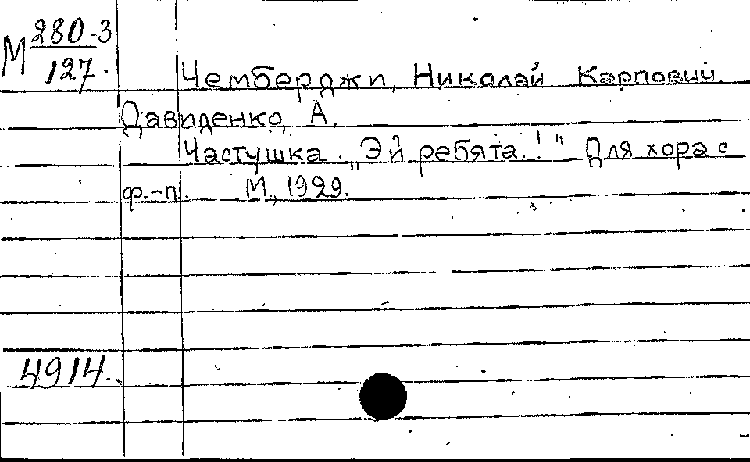 М 280-3
127.
Чемберджи, Николай Карпович.
Давиденко, А.
Частушка. „Эй ребята!" Для хора с
ф.-п. М., 1929.
4914.